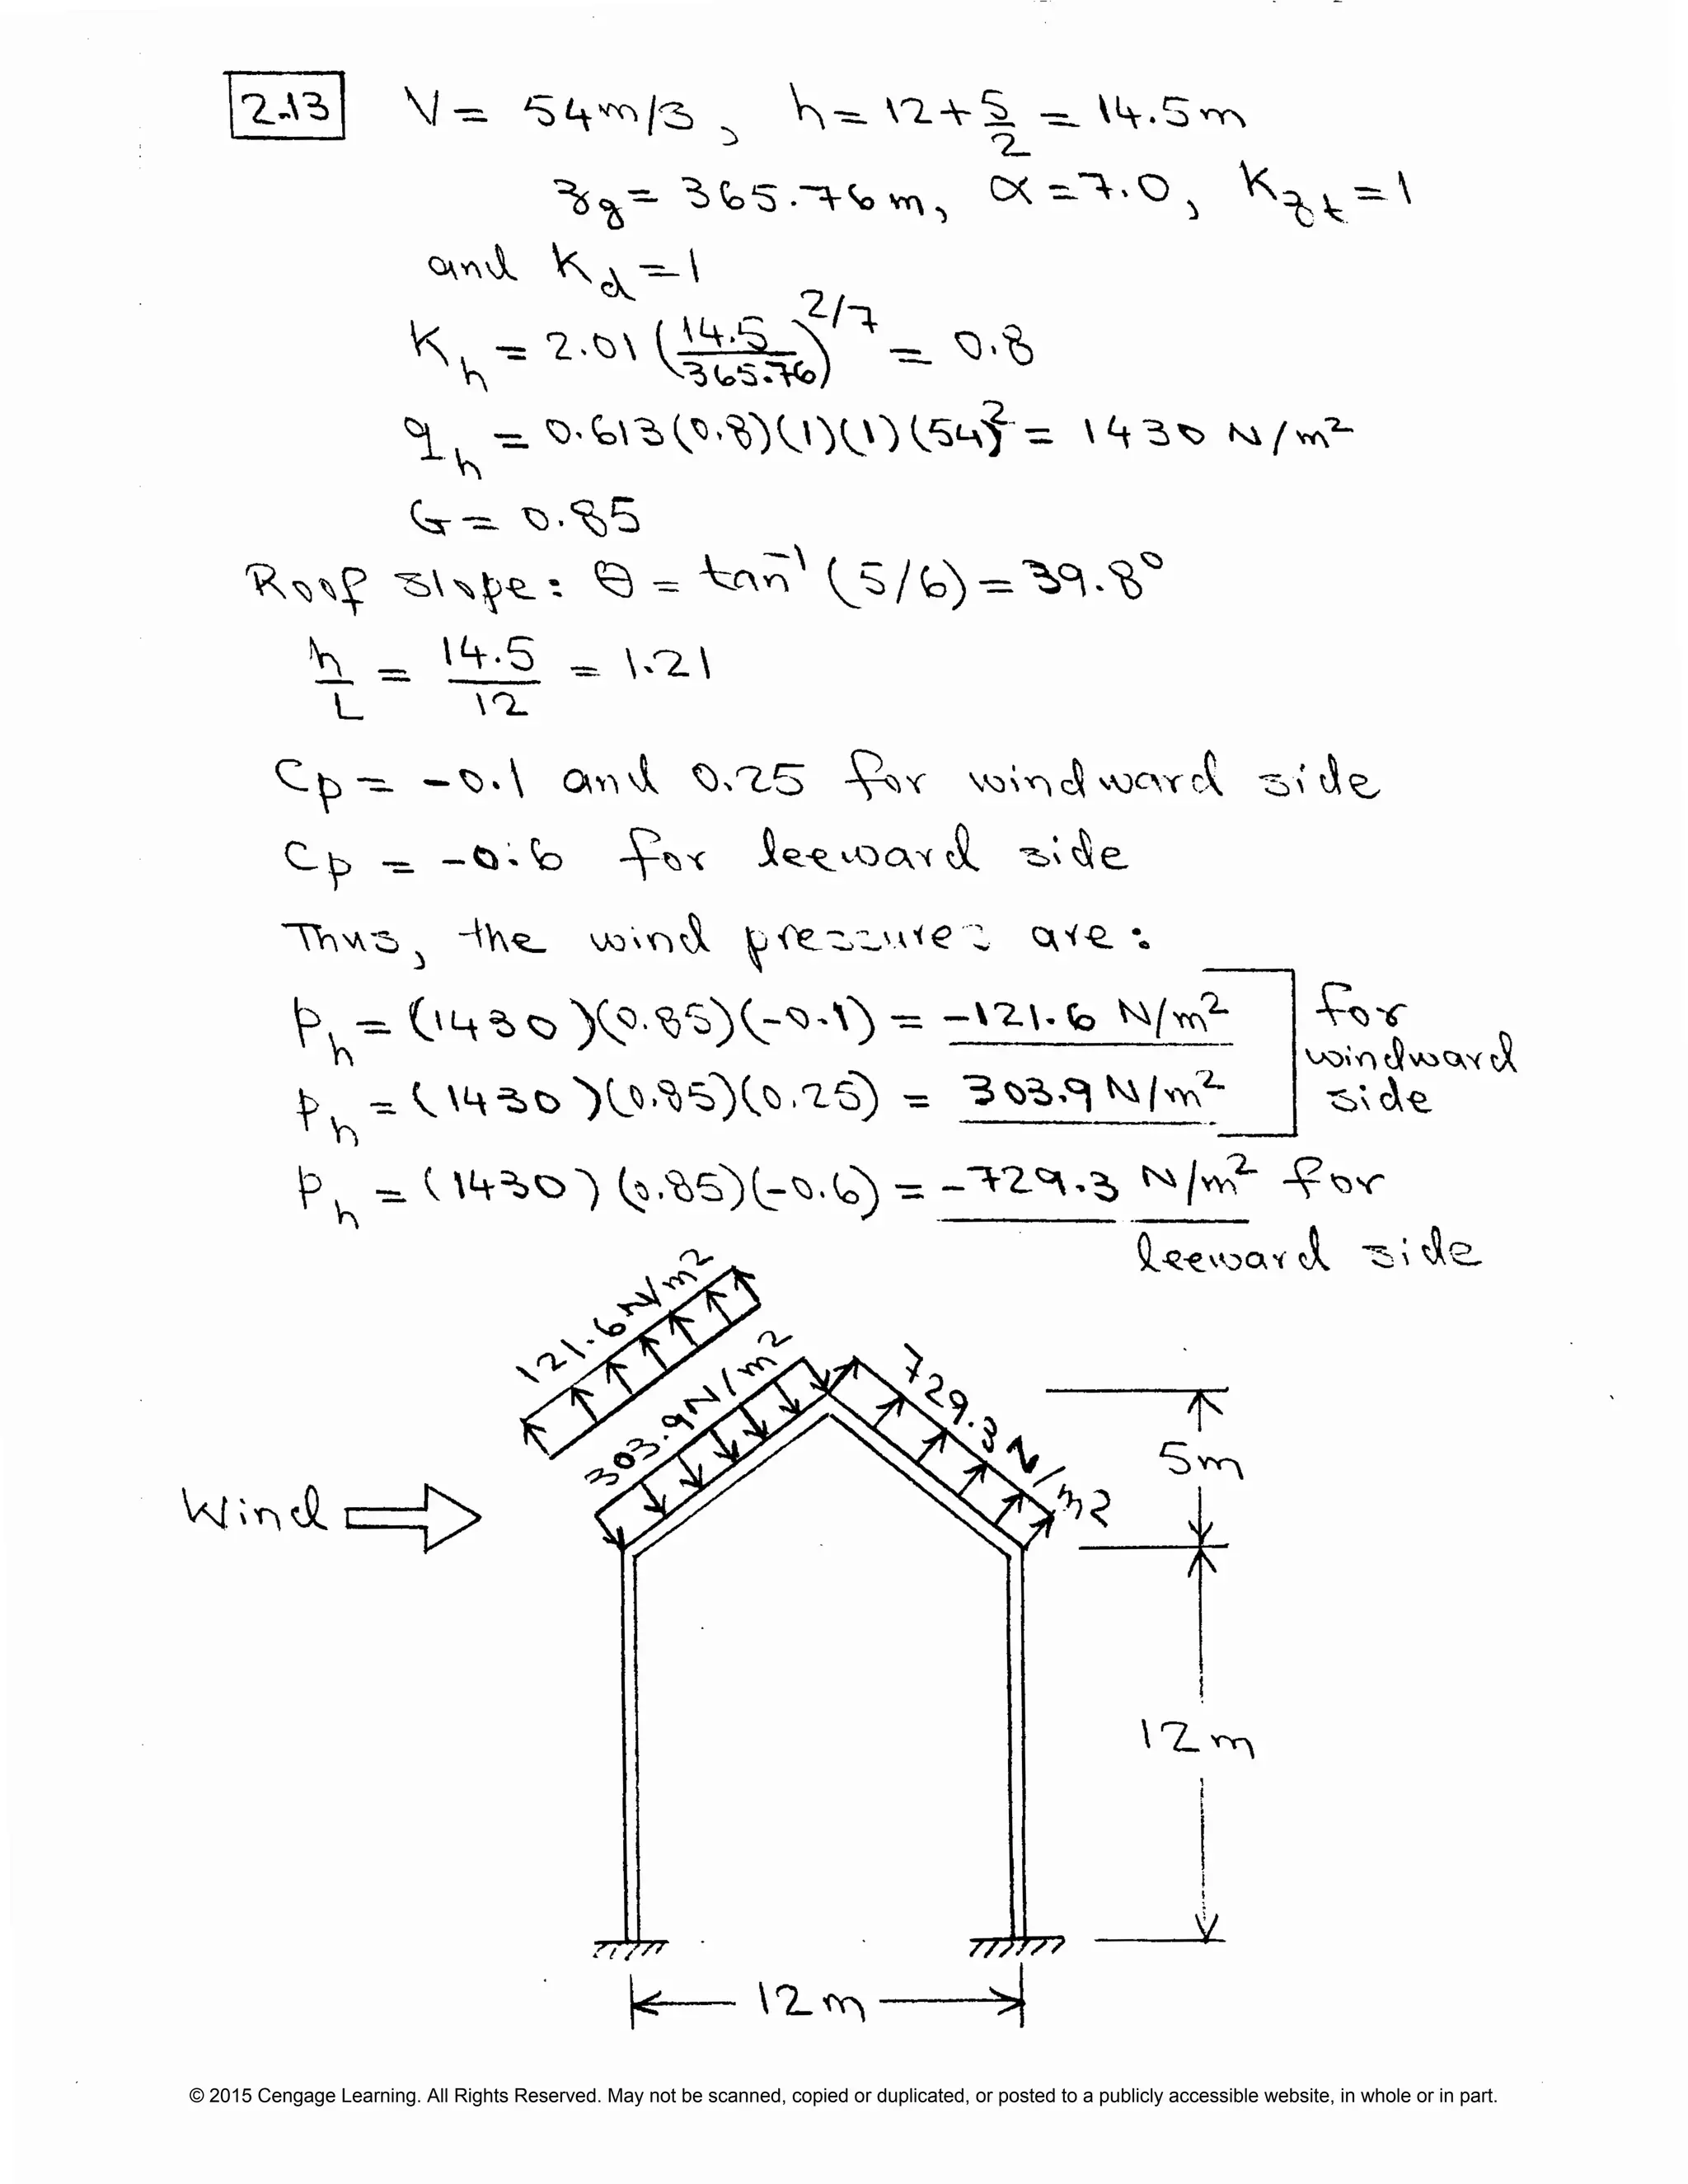 2.13 V = 54 m/s, h = 12 + 5/2 = 14.5 m
zg = 365.76 m, α = 7.0, Kzt = 1
and Kd = 1
Kh = 2.01 (14.5/365.76)^2/7 = 0.8
qh = 0.613(0.8)(1)(1)(54)² = 1430 N/m²
G = 0.85
Roof slope: θ = tan⁻¹ (5/6) = 39.8°
h/L = 14.5/12 = 1.21
Cp = -0.1 and 0.25 for windward side
Cp = -0.6 for leeward side
Thus, the wind pressures are:
Ph = (1430)(0.85)(-0.1) = -121.6 N/m²
Ph = (1430)(0.85)(0.25) = 303.9 N/m²
for
windward
side
Ph = (1430)(0.85)(-0.6) = -729.3 N/m² for
leeward side
121.6 N/m²
303.9 N/m²
729.3 N/m²
5m
Wind
12 m
12 m
© 2015 Cengage Learning. All Rights Reserved. May not be scanned, copied or duplicated, or posted to a publicly accessible website, in whole or in part.